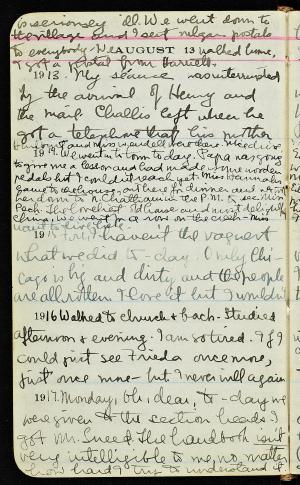 is seriously ill. We went down to
the village and I sent nelgan postals
to everybody. He AUGUST 13 walked home,
I got a postal from Harriett.
1913. My seance was interrupted
by the arrival of Henry and
the mail. Challis left when he
got a telephone that his mother
1914. We went in to town to day. Papa was going
to give me a lesson and had made some wooden
pedals but I could reach yet. Miss
came to the house, out here for dinner and
her down to N. Chatham in the P.M. to see Mrs
Pach. The loveliest place and most delightful
china, we went for a on the ocean. Miss
want to live late.
1915 Fri. I haven't the vaguest
what we did to-day. Only Chi-
cago is big and dirty and the people
are all rotten. I love it but I wouldn't
1916 Walked to church & back. Studied
afternoon & evening. I am so tired. If I
could just see Frieda once more,
just once more - but I never will again
1917. Monday, Oh, dear, to-day we
were given to the section heads. I
got Mr. Sneed. The handbook isn't
very intelligible to me, no matter
how hard I try to understand it